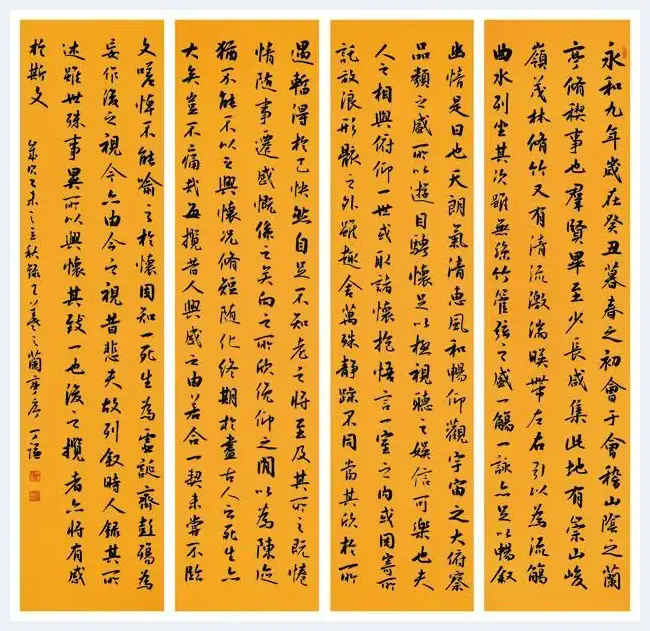 永和九年歲在癸丑暮春之初會于會稽山陰之蘭
亭脩稧事也羣賢畢至少長咸集此地有崇山峻
嶺茂林脩竹又有清流激湍暎帶左右引以為流觴
曲水列坐其次雖無絲竹管弦之盛一觴一詠亦足以暢敘
幽情是日也天朗氣清惠風和暢仰觀宇宙之大俯察
品類之盛所以遊目騁懷足以極視聽之娛信可樂也夫
人之相與俯仰一世或取諸懷抱悟言一室之內或因寄所
託放浪形骸之外雖趣舍萬殊靜躁不同當其欣於所
遇暫得於己快然自足不知老之將至及其所之既惓
情隨事遷感慨係之矣向之所欣俛仰之閒以為陳迹
猶不能不以之興懷況脩短隨化終期於盡古人云死生亦
大矣豈不痛哉每攬昔人興感之由若合一契未嘗不臨
文嗟悼不能喻之於懷固知一死生為虛誕齊彭殤為
妄作後之視今亦由今之視昔悲夫故列敘時人錄其所
述雖世殊事異所以興懷其致一也後之攬者亦將有感
於斯文 歲次乙未之立秋錄王羲之蘭亭序